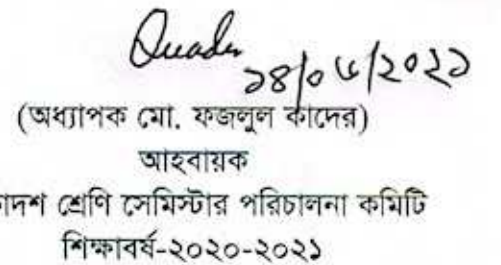 Quader
১৪/০৬/২০২১
(অধ্যাপক মো. ফজলুল কাদের)
আহবায়ক
াদশ শ্রেণি সেমিস্টার পরিচালনা কমিটি
শিক্ষাবর্ষ-২০২০-২০২১